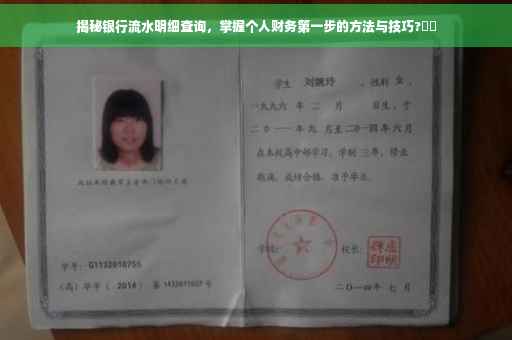 揭秘银行流水明细查询，掌握个人财务第一步的方法与技巧?
学生 刘婉玲 ，性别 女 ，
一九九六 年 二 月 日生，于
二〇一一 年 九 月至 二〇一四 年 六 月
在本校高中部学习，学制 三 年，修业
期满，成绩合格，准予毕业。
学校: 校长:
学号: G1132010755
(高) 毕字 ( 2014 ) 第 1432011607 号
二〇一四年 七 月